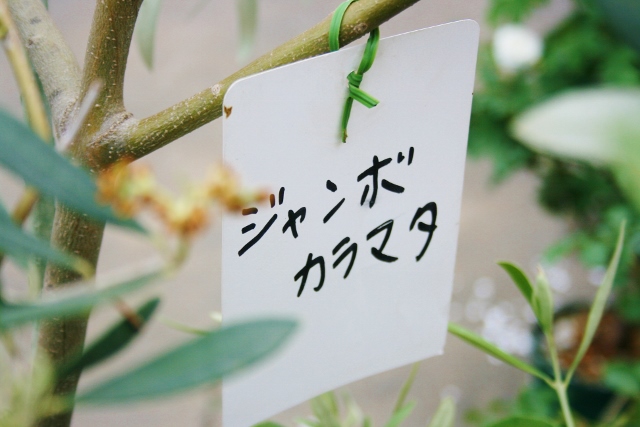 ジャンボ
カラマタ